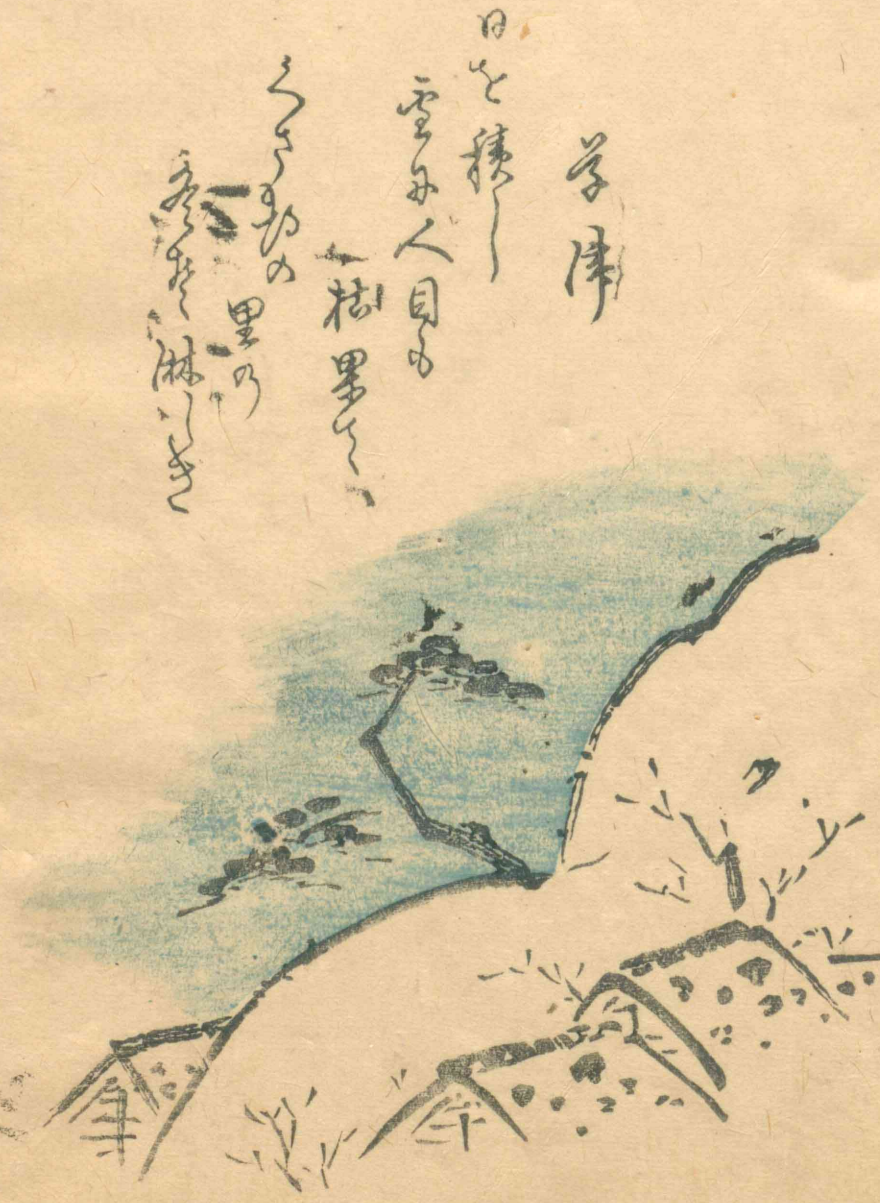 草津
日を積し
雪に人目も
枯果て
くさ都の
里の
冬そ淋しき